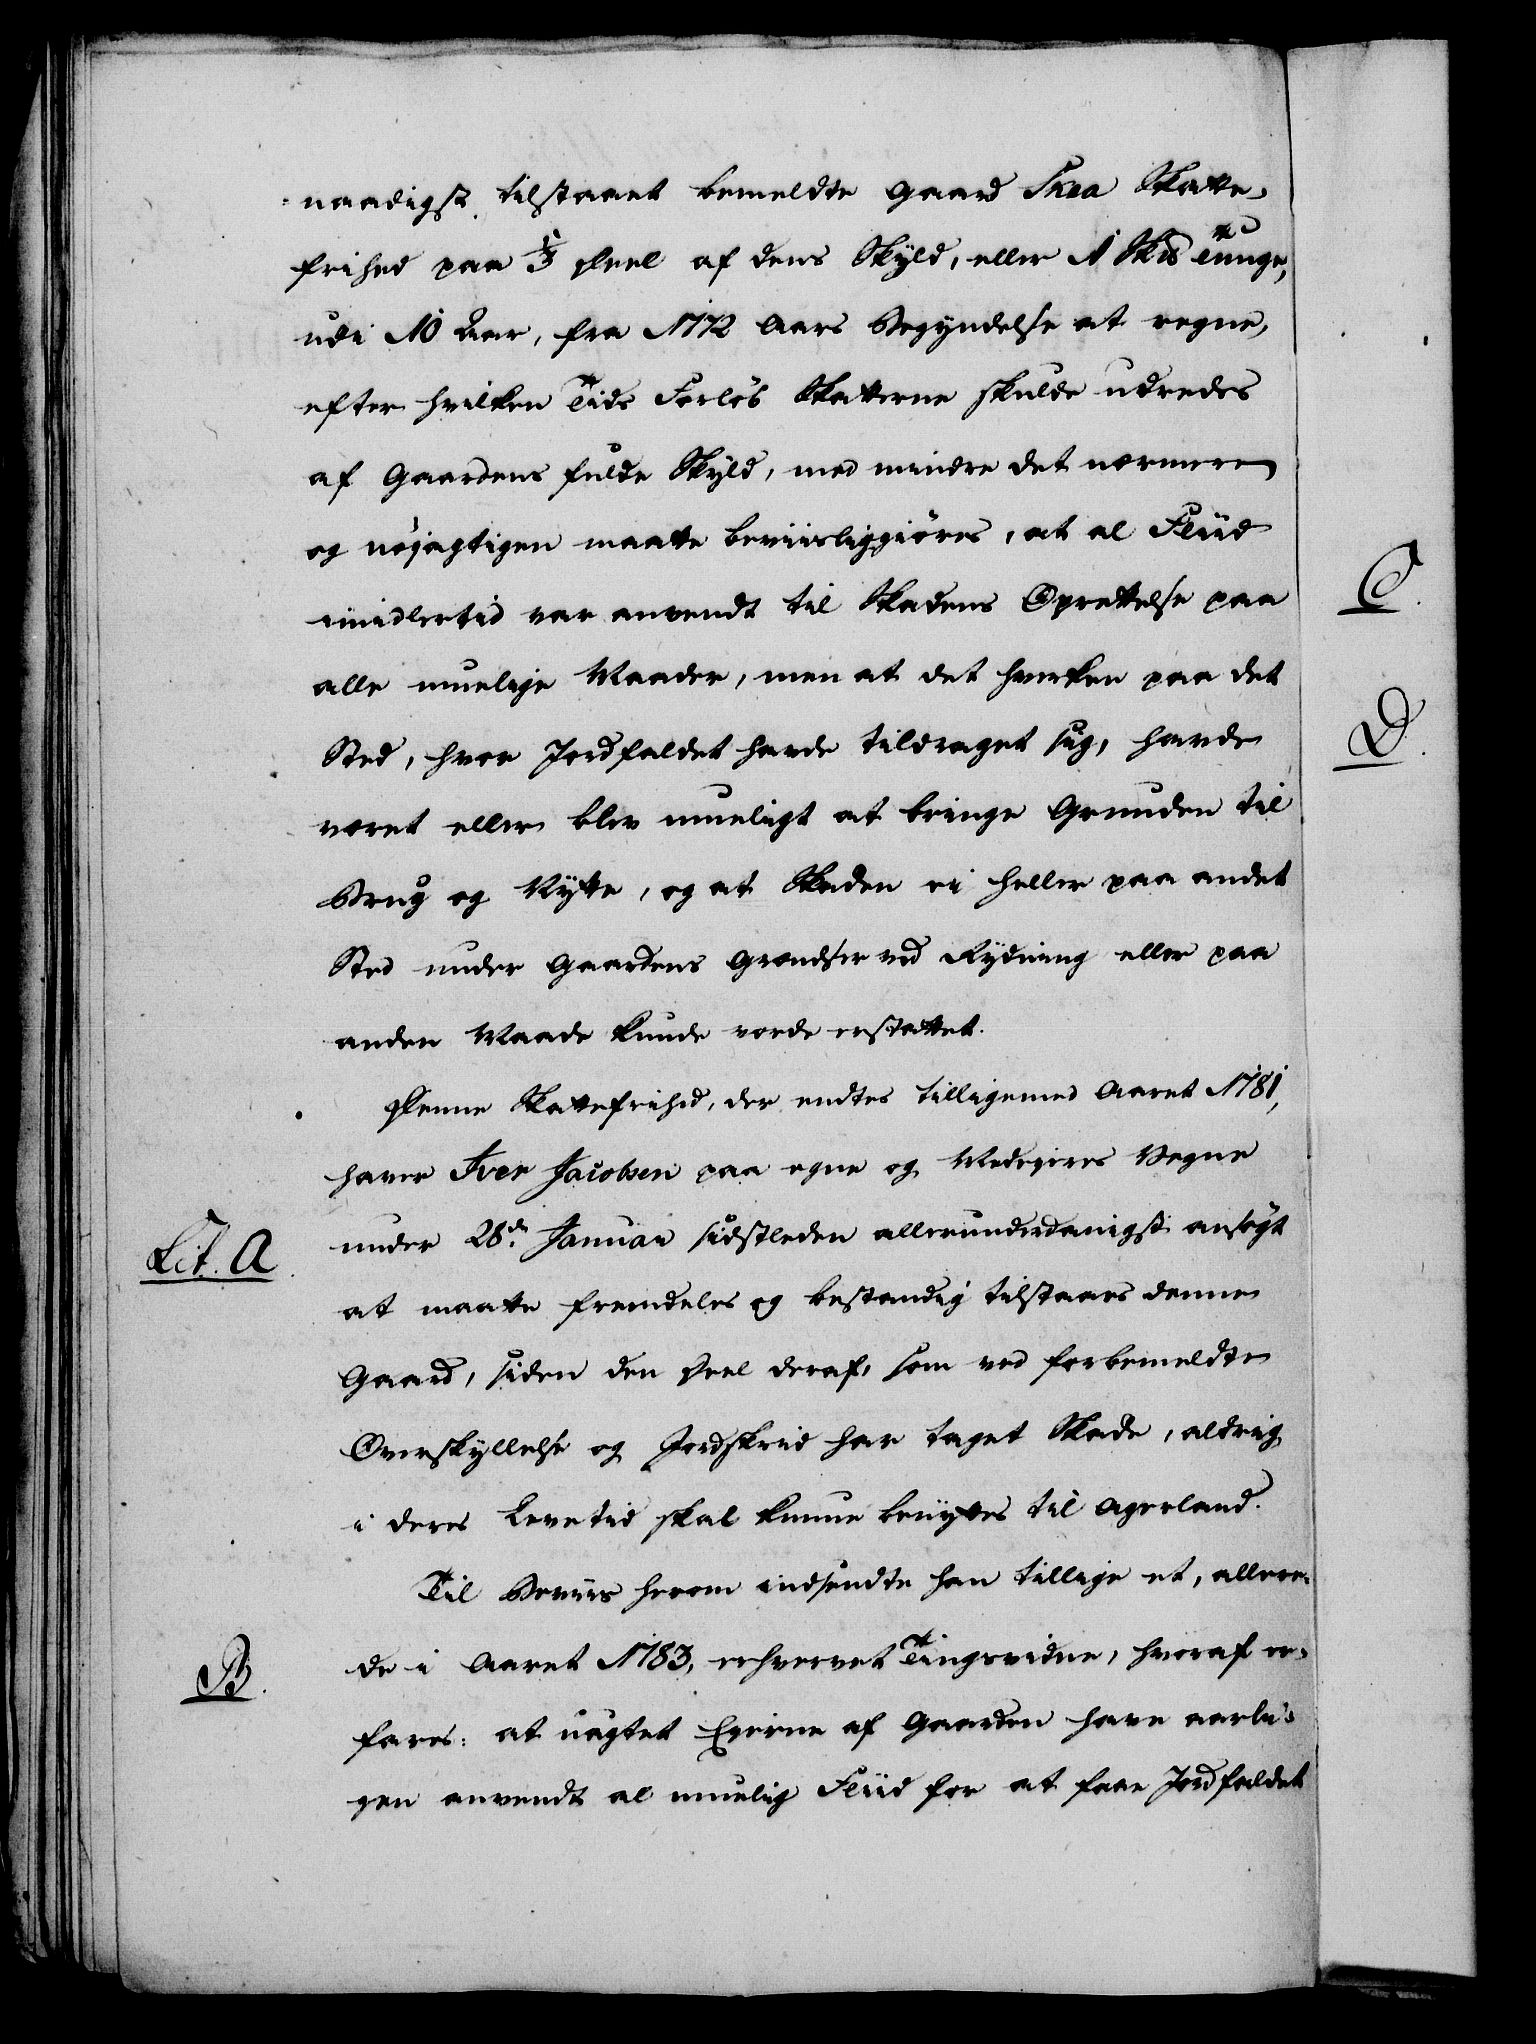 naadigst tilstaaet bemeldte Gaard Skea Skatte-
friehed paa 1/3 Deel af dens Skyld, eller 1 Skd Tunge,
udi 10 Aar, fra 1772 Aars Begyndelse at regne,
efter hvilken Tids Forløb Skatterne skulde udredes
af Gaardens fulde Skyld, med mindre det nærmere
og nøjagtigen maatte beviisliggiøres, at al Fliid
imidlertid var anvendt til Skadens Oprettelse paa
alle muelige Maader, men at det hverken paa det
Sted, hvor Jordfaldet havde tildraget sig, havde
været eller blev mueligt at bringe Grunden til
Brug og Nytte, og at Skaden ei heller paa andet
Sted under Gaardens Grændser ved Rydning eller paa
anden Maade kunde vorde erstattet.
Denne Skattefrihed, der endtes tilligemed Aaret 1781,
haver Iver Jacobsen paa egne og Medejeres Vegne
Lit. A. under 28de Januar sidstleden allerunderdanigst ansøgt
at maatte fremdeles og bestandig tilstaaes denne
Gaard, siden den Deel deraf, som ved forbemeldte
Overskyllelse og Jordskred har taget Skade, aldrig
i deres Levetid skal kunne benyttes til Agerland.
Til Beviis herom indsendte han tillige et, allere-
B. de i Aaret 1783, erhvervet Tingsvidne, hvoraf er-
fares: at uagtet Ejerne af Gaarden have aarli-
gen anvendt al muelig Fliid for at faae Jordfaldet
C.
D.